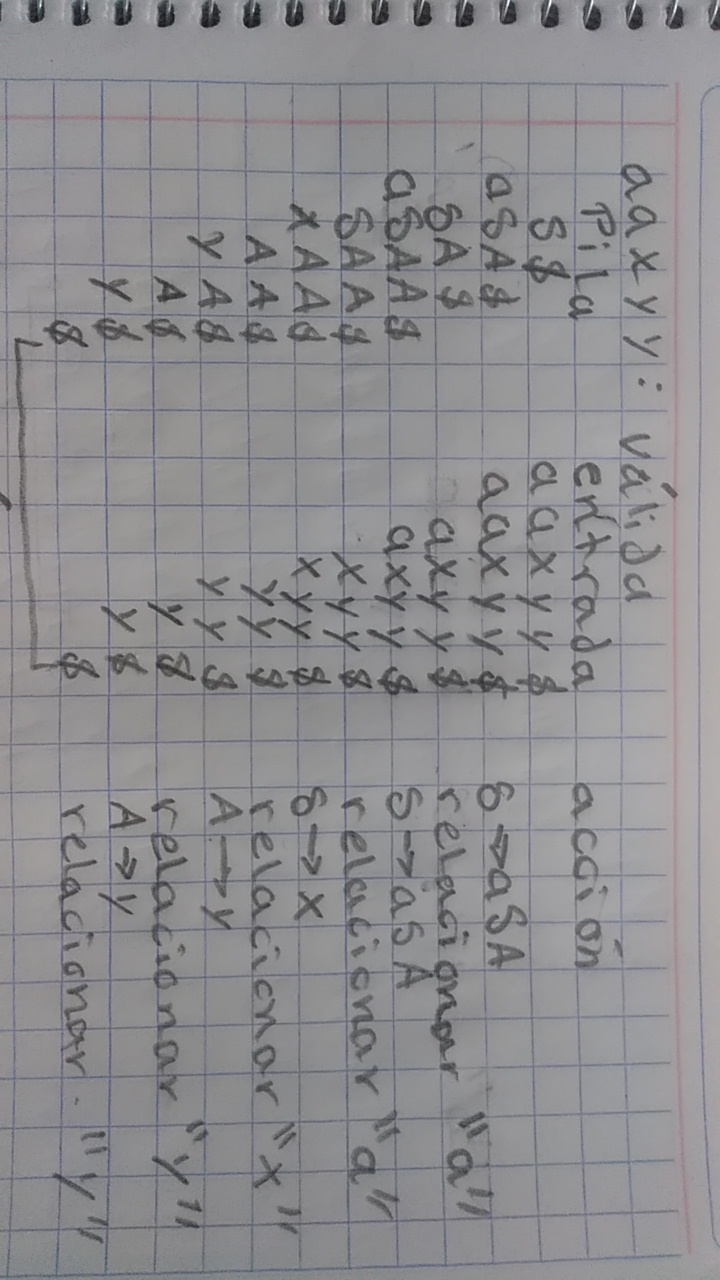 aaxyy: válida
Pila entrada acción
S$ aaxyy$
aSA$ aaxyy$ S→aSA
SA$ axyy$ relacionar "a"
aSAA$ axyy$ S→aSA
SAA$ xyy$ relacionar "a"
xAA$ xyy$ S→x
AA$ yy$ relacionar "x"
yA$ yy$ A→y
A$ y$ relacionar "y"
y$ y$ A→y
$ $ relacionar. "y"